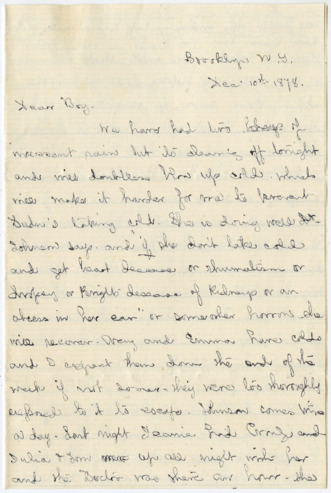 Brooklyn N.Y.
Dec. 10th 1878.
Dear Boy.
We have had two days of
incessant rain but its clearing off tonight
and will doubtless blow up cold. which
will make it harder for me to prevent
taking cold. She is doing well Dr.
Johnson says. and if she dont take cold
and get heart disease or rheumatism or
dropsy or Brights disease of Kidneys or an
abcess in her ear" or some other horror she
will recover. and Emma have colds
and I expect them down the end of the
week if not sooner. they were too thoroughly
exposed to it to escape. Johnson comes twice
a day. Last night Jeannie had Croup and
Julia & Tom up all night with her
and the Doctor was there an hour. She